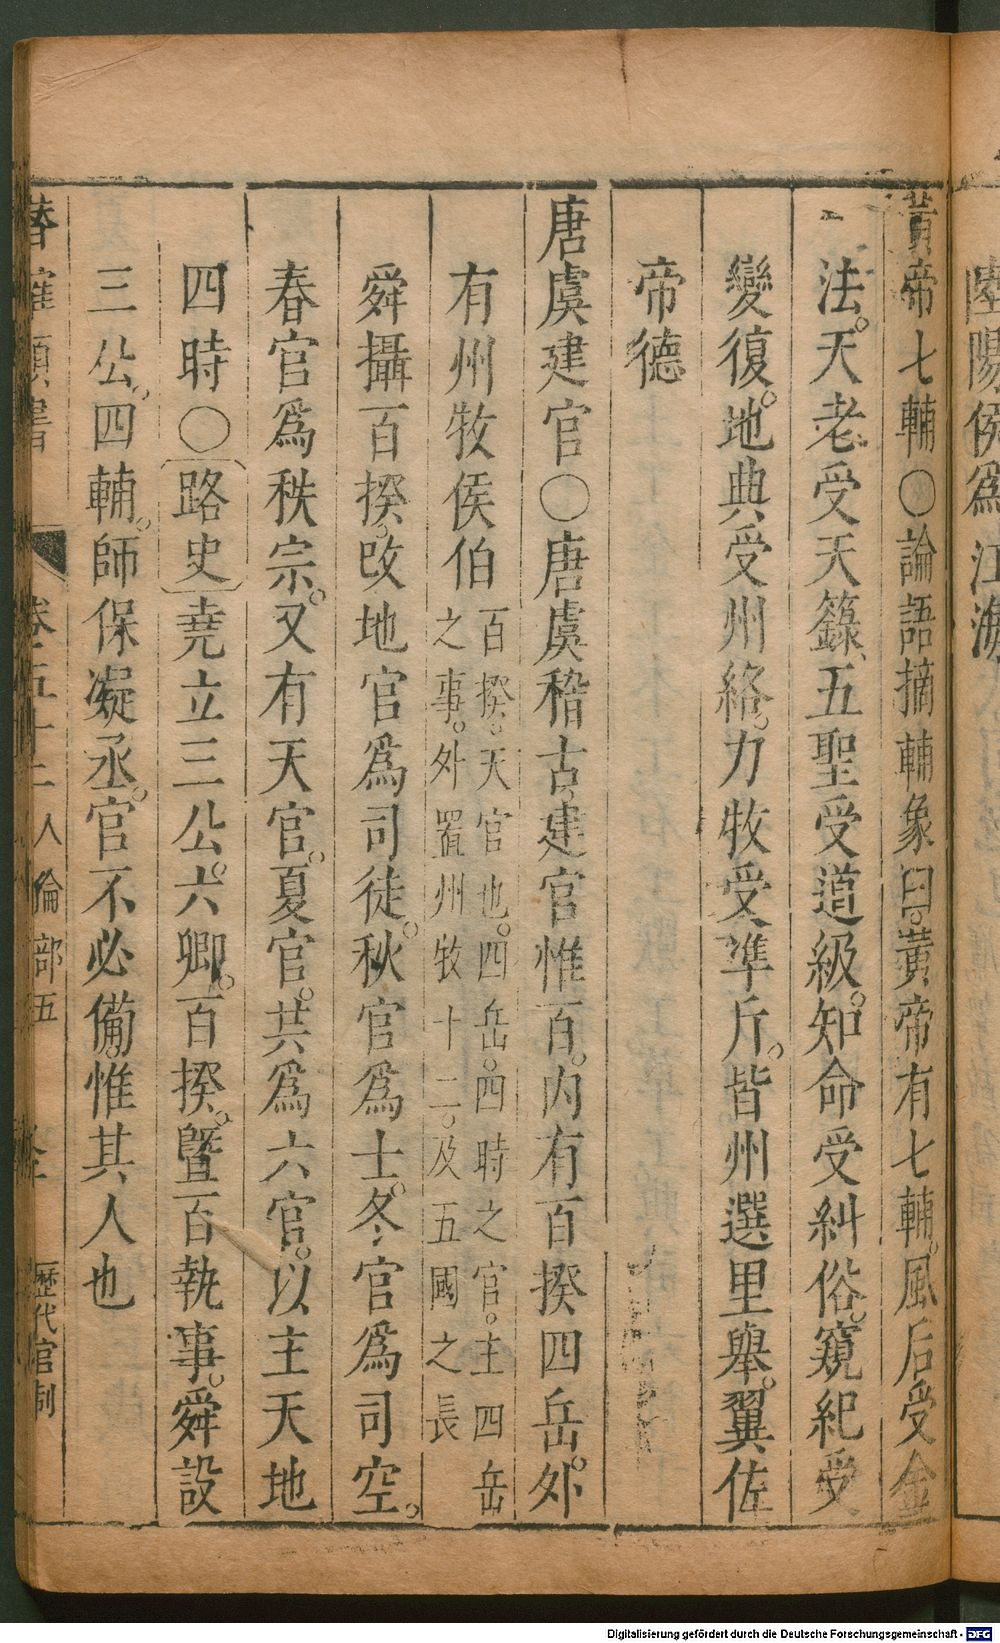 陸陽侯爲江海
黃帝七輔○論語摘輔象曰。黃帝有七輔。風后受金
法。天老受天籙、五聖受道級。知命受糾俗。窺紀受
變復。地典受州絡。力牧受準斤。皆州選里舉。翼佐
帝德
唐虞建官○唐虞稽古。建官惟百。内有百揆四岳。外
有州牧侯伯
百揆。天官也。四岳。四時之官。主四岳
之事。外置州牧十二。及五國之長
舜攝百揆。改地官爲司徒。秋官爲士。冬官爲司空。
春官爲秩宗。又有天官。夏官。共爲六官。以主天地
四時○路史堯立三公。六卿。百揆。曁百執事。舜設
三公。四輔。師保凝丞。官不必備。惟其人也
潜確類書 卷五十二人倫部五 歷代官制
Digitalisierung gefördert durch die Deutsche Forschungsgemeinschaft - DFG